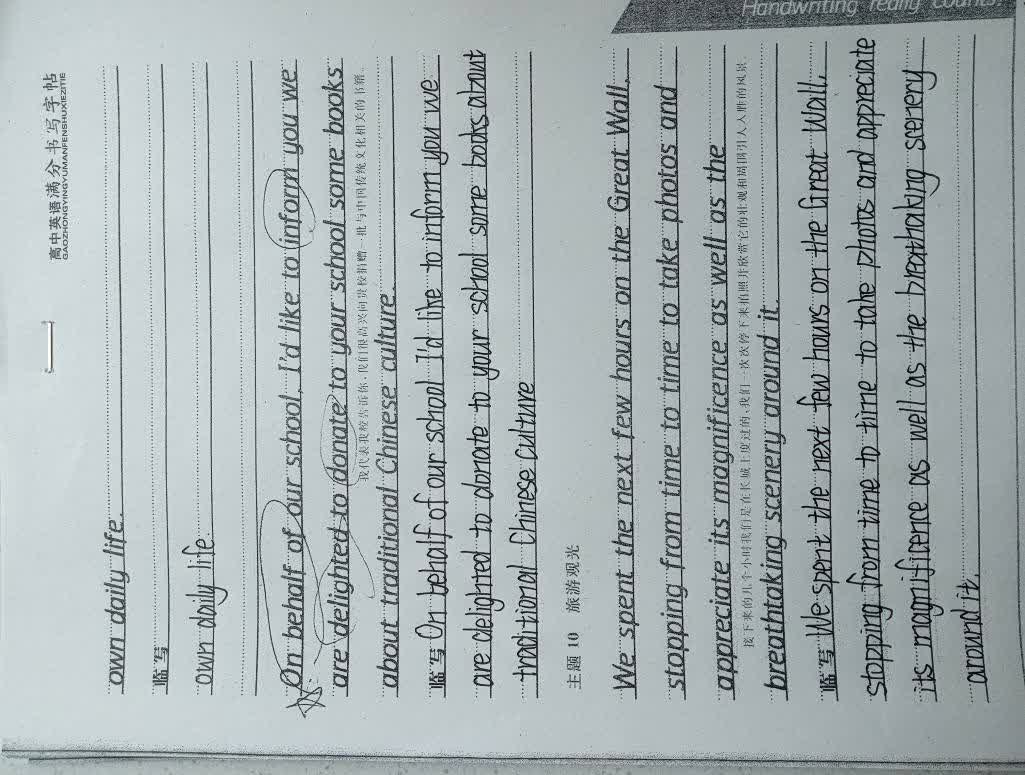 Handwriting really counts!
高中英语满分书写字帖
GAOZHONGYINGYUMANFENSHUXIEZITIE
own daily life.
临写
own daily life.
On behalf of our school, I'd like to inform you we
are delighted to donate to your school some books
我代表我校告诉你,我们很高兴向贵校捐赠一批与中国传统文化相关的书籍。
about traditional Chinese culture.
临写 On behalf of our school I'd like to inform you we
are delighted to donate to your school some books about
traditional Chinese culture
主题 10 旅游观光
We spent the next few hours on the Great Wall,
stopping from time to time to take photos and
appreciate its magnificence as well as the
接下来的几个小时我们是在长城上度过的,我们一次次停下来拍照并欣赏它的壮观和周围引人入胜的风景。
breathtaking scenery around it.
临写 We spent the next few hours on the Great Wall,
stopping from time to time to take photos and appreciate
its magnificence as well as the breathaking scenery
around it.